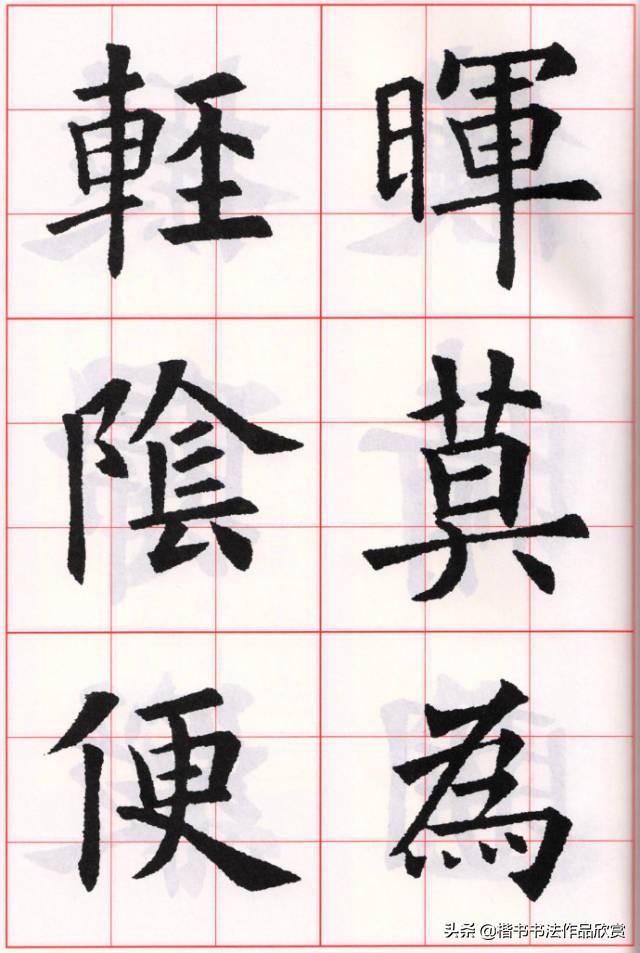 暉莫為
輕陰便
头条 @楷书书法作品欣赏